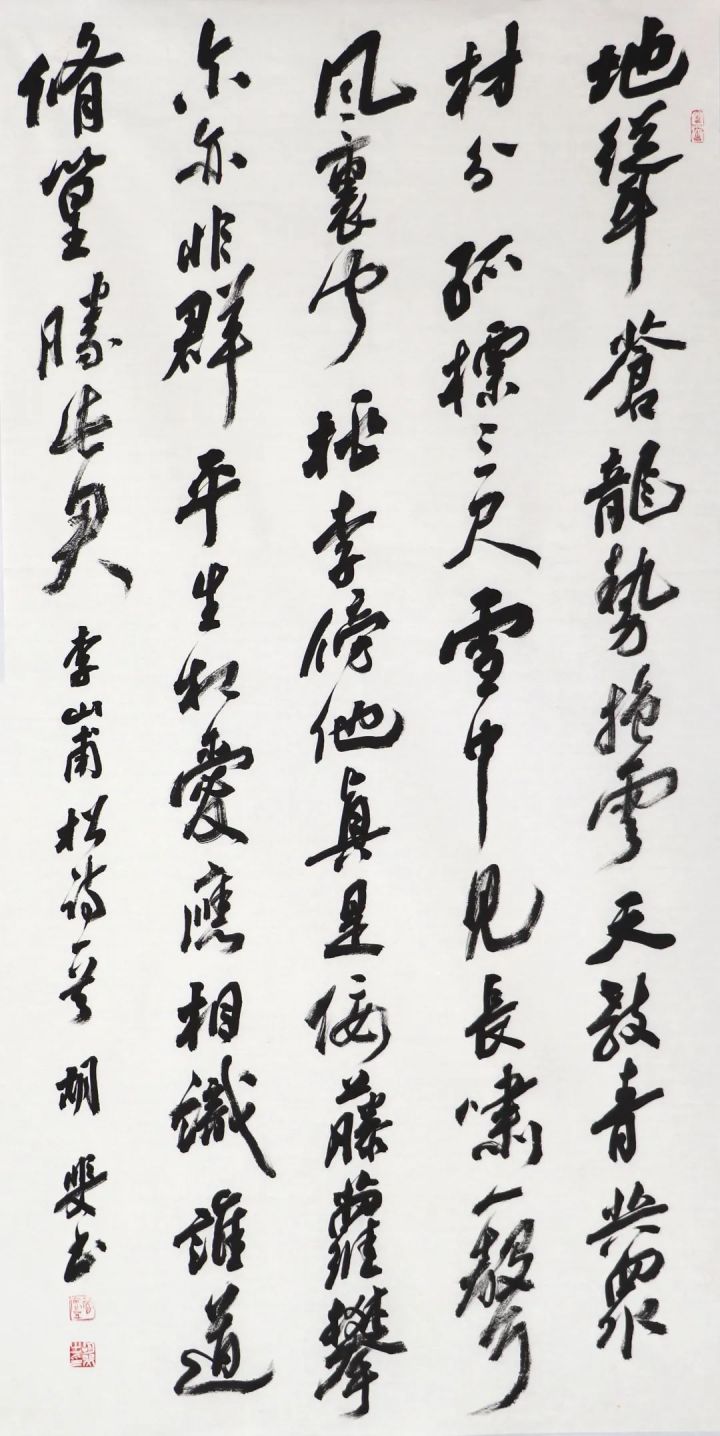 地聳蒼龍勢抱雲天教青共眾
材分孤標百尺雪中見長嘯一聲
風裏聞桃李傍他真是佞藤蘿攀
尔亦非群平生相愛應相識誰道
脩篁勝此君 李山甫松詩一首 胡斐书